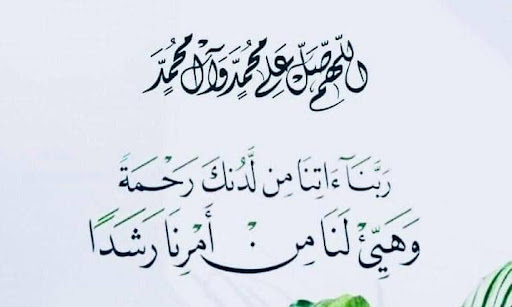 اللّهم صلّ علی محمّد وآل محمّد
رَبَّنَا ءَاتِنَا مِن لَّدُنكَ رَحْمَةً
وَهَيِّئْ لَنَا مِنْ أَمْرِنَا رَشَدًا